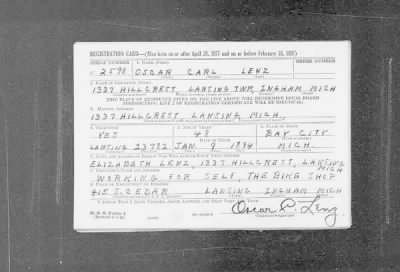 REGISTRATION CARD—(Men born on or after April 28, 1877 and on or before February 16, 1897)
SERIAL NUMBER 1. NAME (Print) ORDER NUMBER
U 2598 OSCAR CARL LENZ
2. PLACE OF RESIDENCE (Print)
1337 HILLCREST, LANSING TWP, INGHAM MICH
[THE PLACE OF RESIDENCE GIVEN ON THE LINE ABOVE WILL DETERMINE LOCAL BOARD
JURISDICTION; LINE 2 OF REGISTRATION CERTIFICATE WILL BE IDENTICAL]
3. MAILING ADDRESS
1337 HILLCREST, LANSING MICH.
4. TELEPHONE 5. AGE IN YEARS 6. PLACE OF BIRTH
YES 48 BAY CITY
DATE OF BIRTH
LANSING 23792 JAN. 9 1894 MICH.
7. NAME AND ADDRESS OF PERSON WHO WILL ALWAYS KNOW YOUR ADDRESS
ELIZABETH LENZ, 1337 HILLCREST, LANSING MICH
8. EMPLOYER'S NAME AND ADDRESS
WORKING FOR SELF, THE BIKE SHOP
9. PLACE OF EMPLOYMENT OR BUSINESS
415 S. CEDAR LANSING INGHAM MICH
I AFFIRM THAT I HAVE VERIFIED ABOVE ANSWERS AND THAT THEY ARE TRUE.
D. S. S. Form 1
Oscar C. Lenz